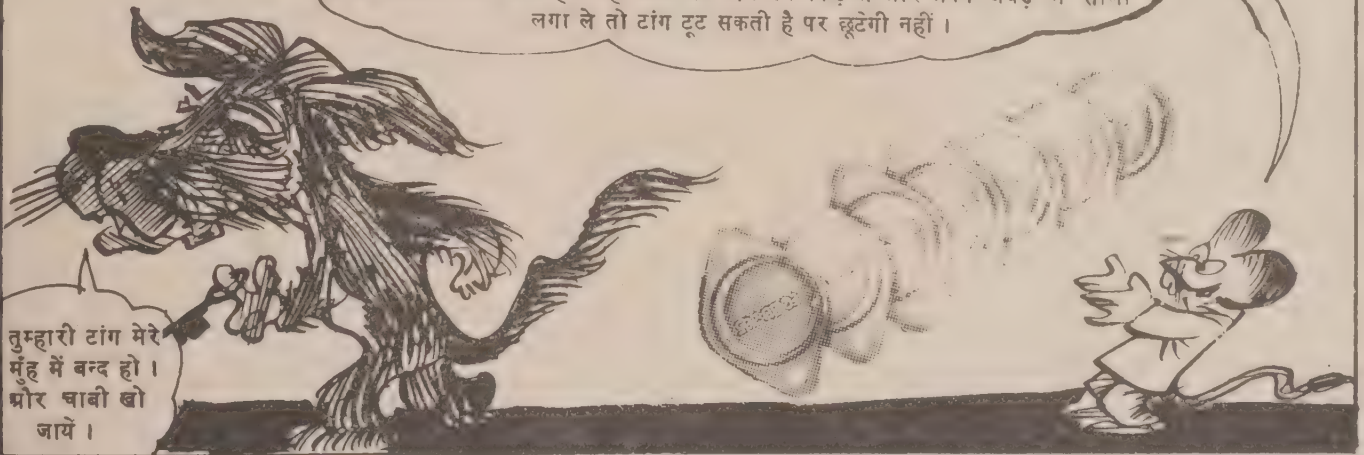 लगा ले तो टांग टूट सकती है पर छूटेगी नहीं ।
तुम्हारी टांग मेरे
मुंह में बन्द हो ।
और चाबी खो
जायें ।